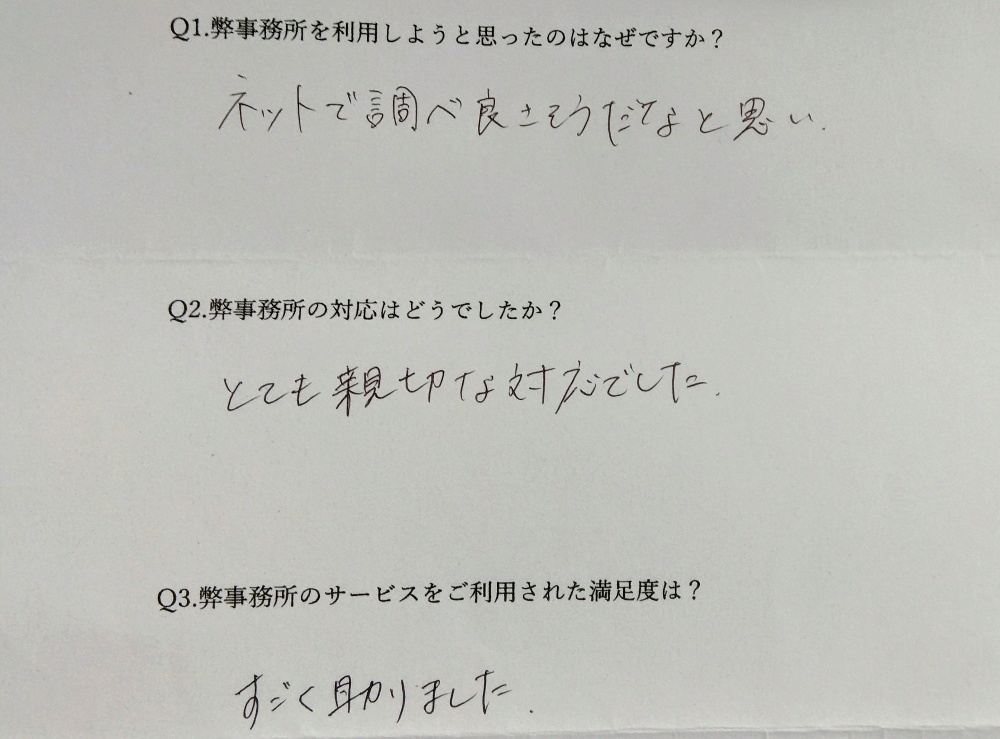 Q1.弊事務所を利用しようと思ったのはなぜですか？
ネットで調べ良さそうだなと思い.
Q2.弊事務所の対応はどうでしたか？
とても親切な対応でした.
Q3.弊事務所のサービスをご利用された満足度は？
すごく助かりました.